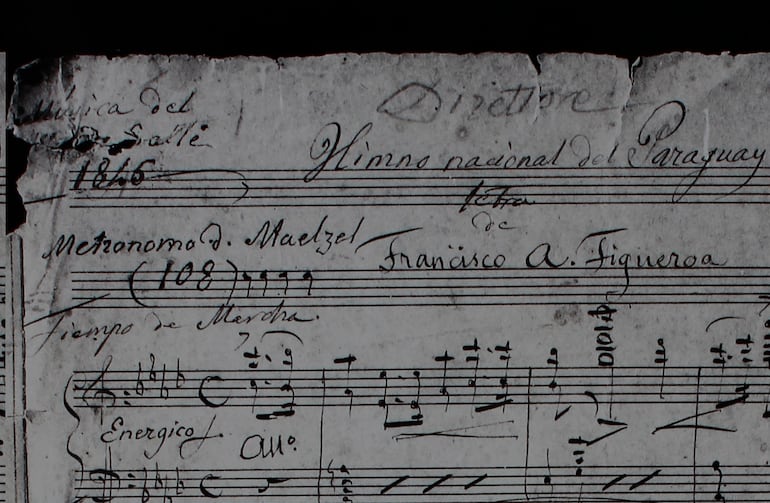 Musica del
Sallé
Direttore
1846
Himno nacional del Paraguay
letra
de
Francisco A. Figueroa
Metronomo d. Maelzel
(108)
Tiempo de Marcha.
Energico f
All.º